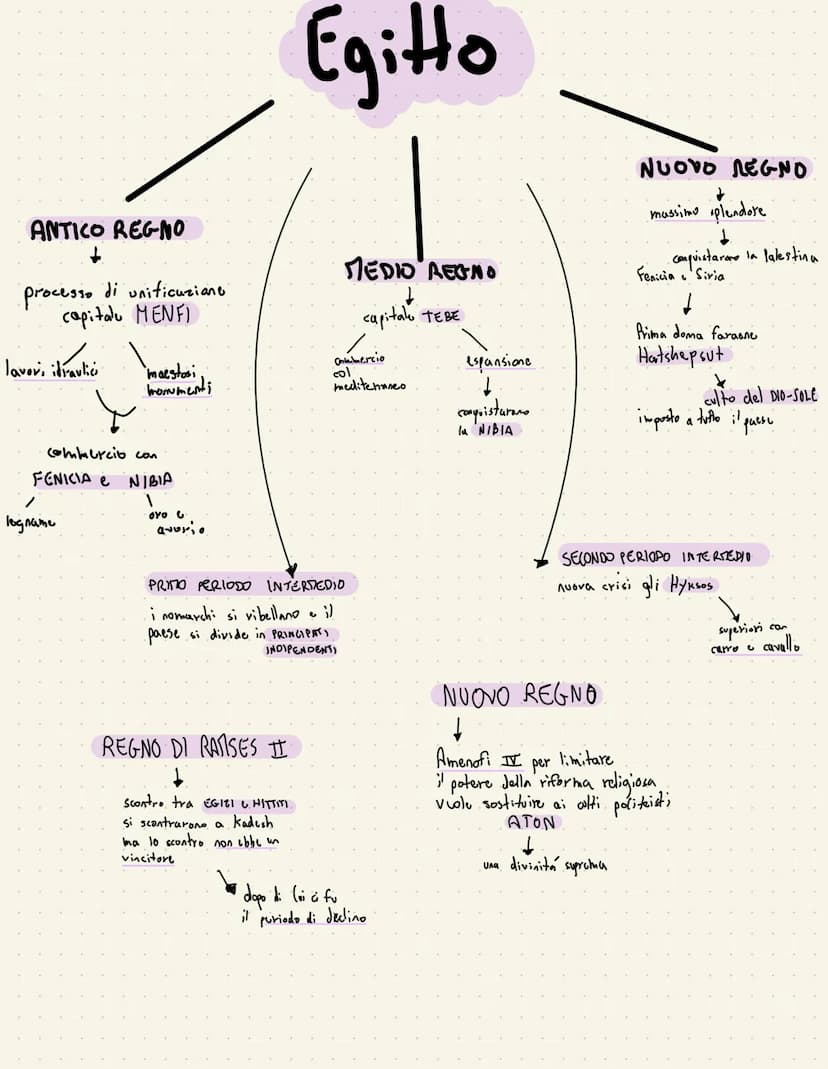 Egitto
ANTICO REGNO
processo di unificazione
capitale MENFI
lavori idraulici
maestosi
monumenti
commercio con
FENICIA e NIBIA
legname
oro e
avorio
PRIMO PERIODO INTERMEDIO
i nomarchi si ribellano e il
paese si divide in PRINCIPATI
INDIPENDENTI
MEDIO REGNO
capitale TEBE
commercio
col
mediterraneo
espansione
conquistarono
la NIBIA
SECONDO PERIODO INTERMEDIO
nuova crisi gli Hyksos
superiori con
carro e cavallo
NUOVO REGNO
massimo splendore
conquistarono la Palestina
Fenicia e Siria
Prima donna faraone
Hatshepsut
culto del DIO-SOLE
imposto a tutto il paese
NUOVO REGNO
Amenofi IV per limitare
il potere della riforma religiosa
vuole sostituire ai culti politeisti
ATON
una divinità suprema
REGNO DI RAMSES II
scontro tra EGIZI e HITTITI
si scontrarono a Kadesh
ma lo scontro non ebbe un
vincitore
dopo di lui ci fu
il periodo di declino